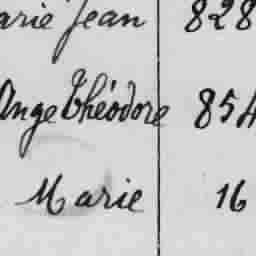 arie Jean 828
Ange Théodore 854
Marie 16